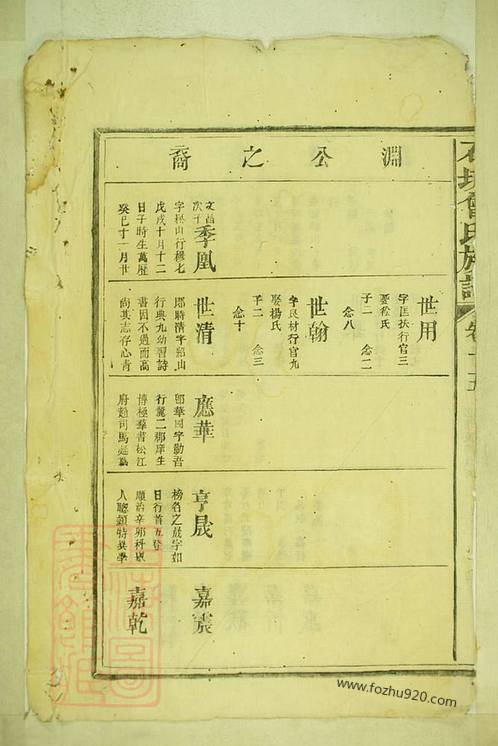 淵公之裔
世用
字匡扶行官三
娶孫氏
子二 念二
念八
世翰
字良材行官九
娶楊氏
子二 念三
念十
文昌
次子
季凰
字松山行穆七
戊戌十月十二
日子時生萬曆
癸巳十一月廿
世清
郎時清字紹山
行典九幼習詩
書因不遇而高
尚其志存心青
應華
郎華國字勤吾
行薦二郡庠生
博極羣書松江
府
司馬
亨晟
榜名之晟字如
日行首五登
順治辛卯科
人聰穎特異學
嘉宸
嘉乾
曾氏族譜
www.fozhu920.com